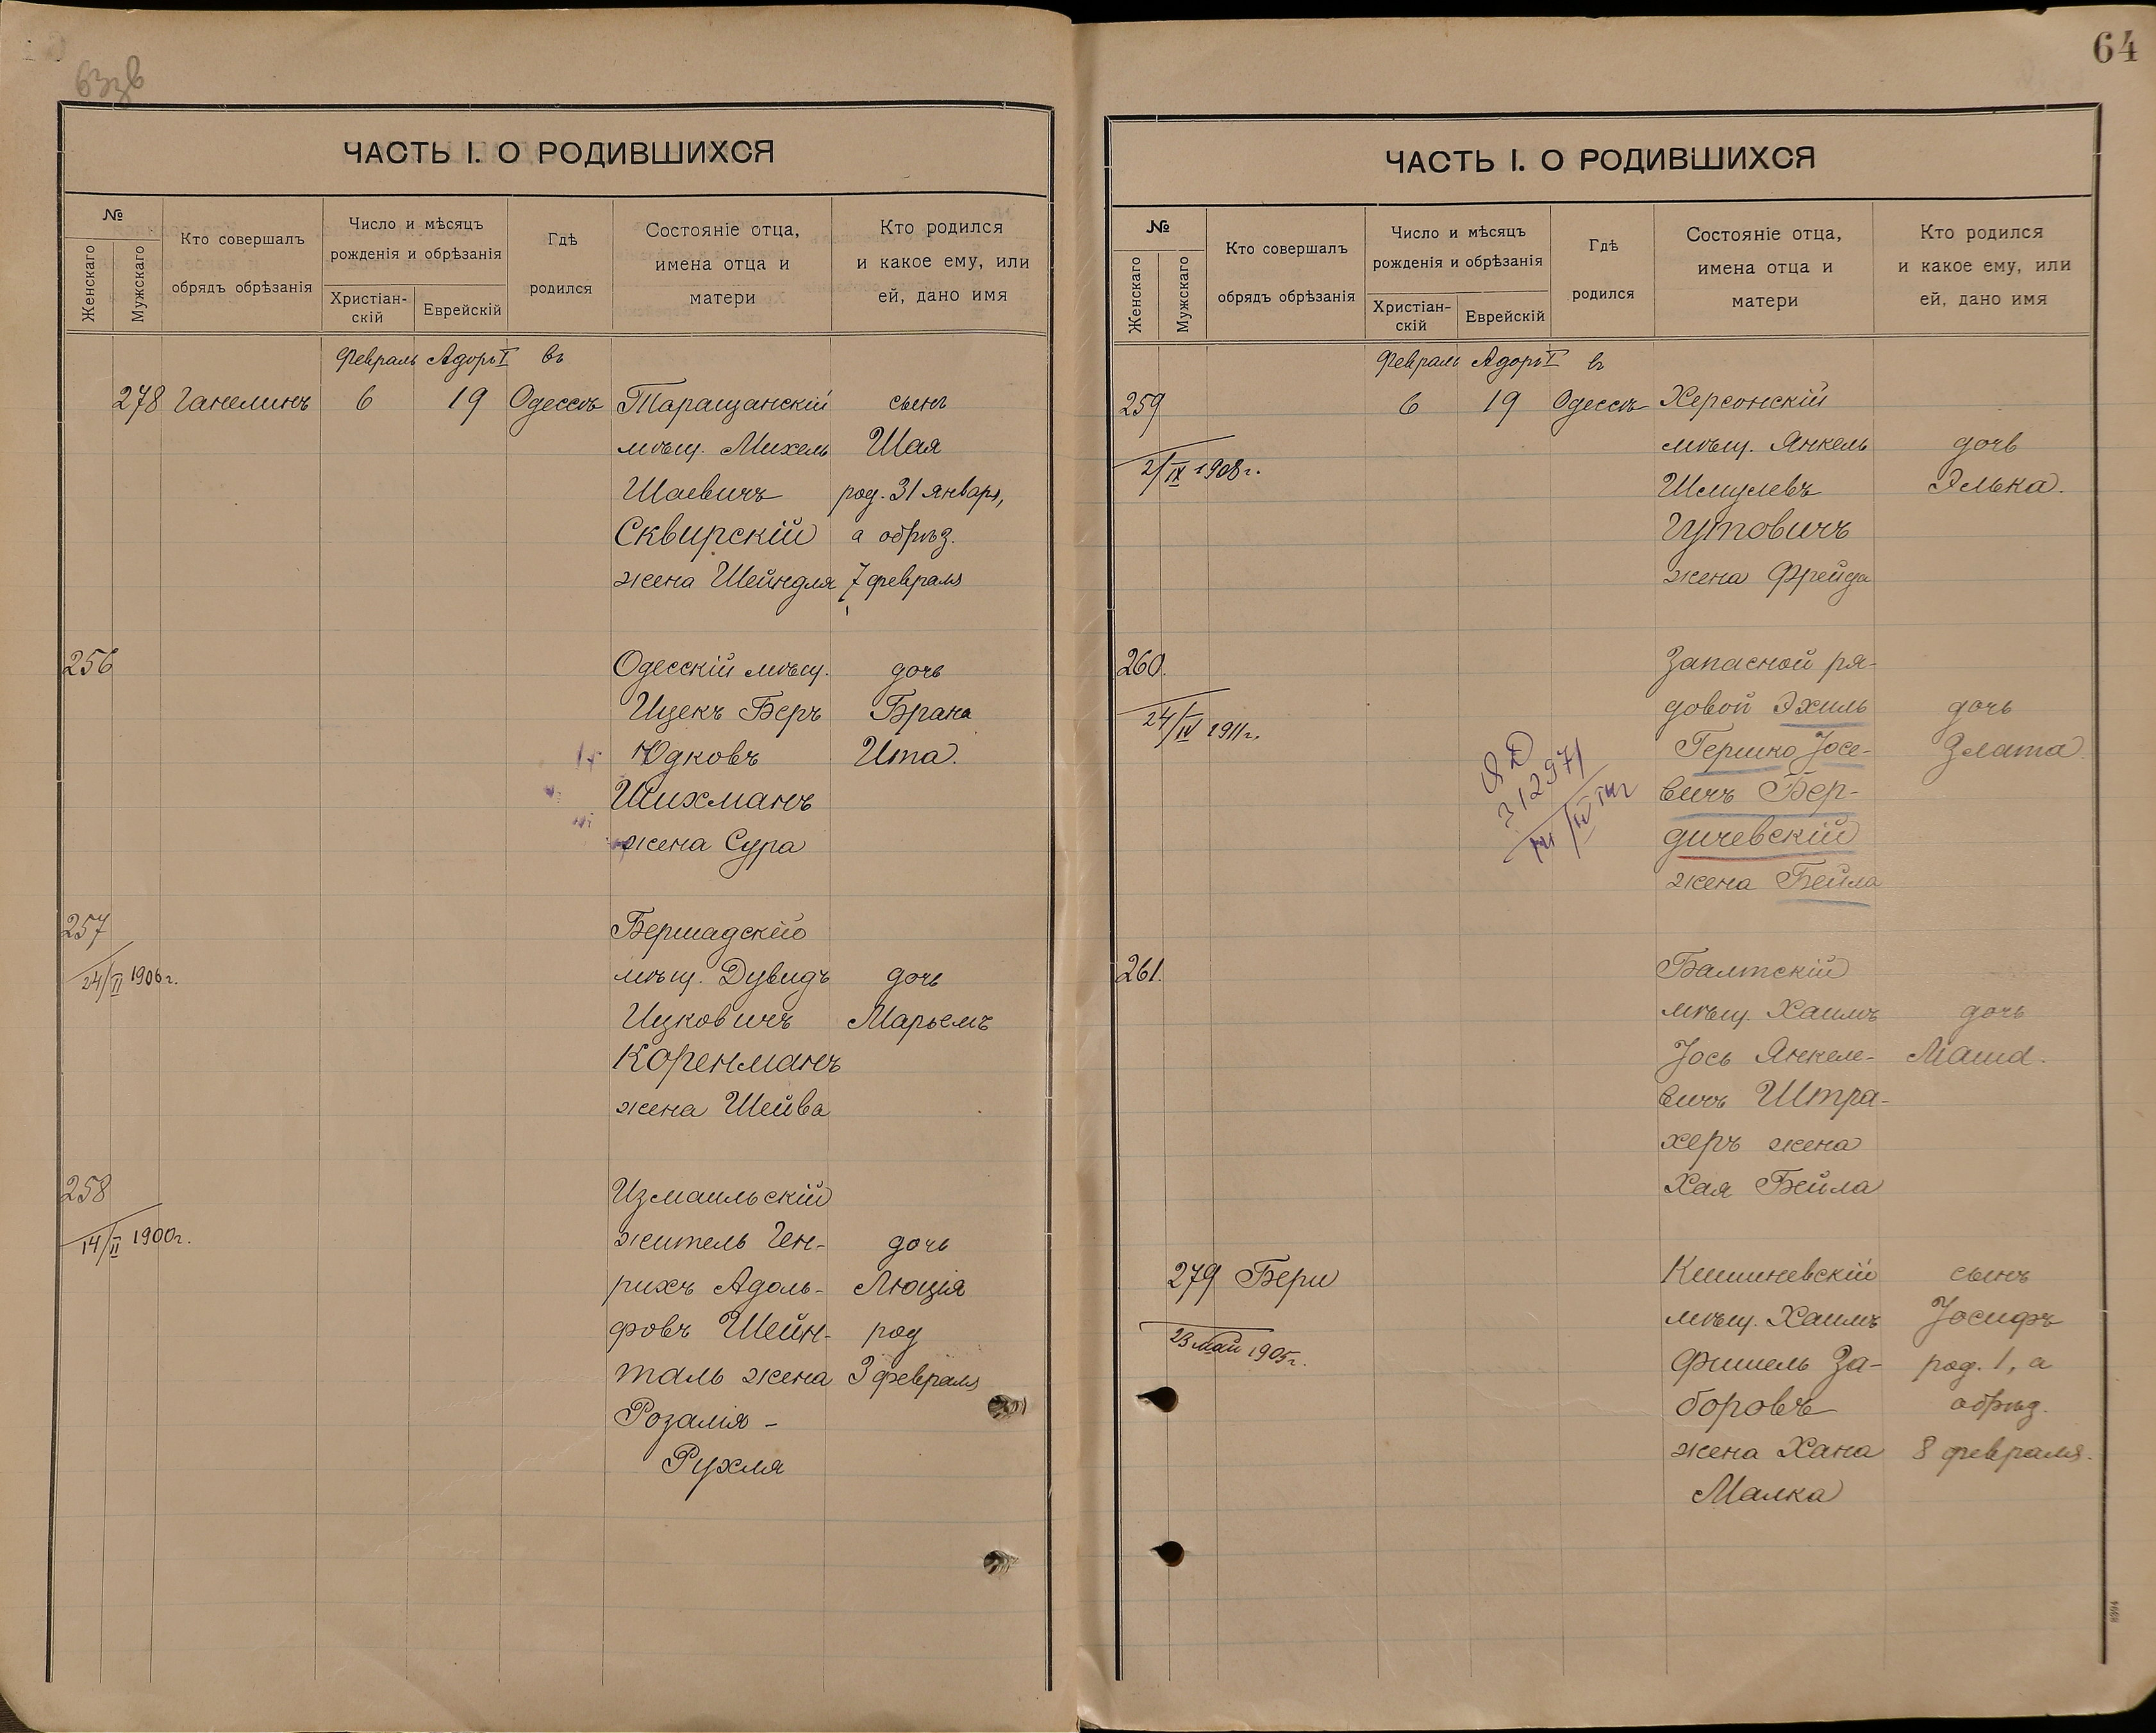 63зв
ЧАСТЬ I. О РОДИВШИХСЯ
№
Женскаго
Мужскаго
Кто совершалъ
обрядъ обрѣзанія
Число и мѣсяцъ
рожденія и обрѣзанія
Христіан-
скій
Еврейскій
Гдѣ
родился
Состояніе отца,
имена отца и
матери
Кто родился
и какое ему, или
ей, дано имя
Февраль Адоръ I въ
278 Ганелинъ 6 19 Одессѣ Таращанскій сынъ
мѣщ. Михель Шая
Шаевичъ род. 31 января,
Сквирскій а обрѣз.
жена Шейндля 7 февраля
256 Одесскій мѣщ. дочь
Ицекъ Беръ Брана
Юдковъ Ита.
Шихманъ
жена Сура
257 Бершадскій
24/II 1906 г. мѣщ. Дувидъ дочь
Ицковичъ Марьемъ
Коренманъ
жена Шейва
258 Измаильскій
14/II 1900 г. житель Ген- дочь
рихъ Адоль- Люція
фовъ Шейн- род
таль жена 3 февраля
Розалія -
Рухля
64
ЧАСТЬ I. О РОДИВШИХСЯ
№
Женскаго
Мужскаго
Кто совершалъ
обрядъ обрѣзанія
Число и мѣсяцъ
рожденія и обрѣзанія
Христіан-
скій
Еврейскій
Гдѣ
родился
Состояніе отца,
имена отца и
матери
Кто родился
и какое ему, или
ей, дано имя
Февраль Адоръ I въ
259 6 19 Одессѣ Херсонскій
мѣщ. Янкель дочь
2/IX 1908 г. Шмулевъ Элька.
Гутовичъ
жена Фрейда
260. Запасной ря-
24/IV 1911 г. довой Эхиль дочь
Гершко Іосе- Злата
вичъ Бер-
дичевскій
жена Бейла
312971
261. Балтскій
мѣщ. Хаимъ дочь
Іось Янкеле- Маша.
вичъ Штра-
херъ жена
Хая Бейла
279 Бери Кишиневскій сынъ
23 май 1905 г. мѣщ. Хаимъ Іосифъ
Фишель За- род. 1, а
боровъ обрѣз.
жена Хана 8 февраля.
Малка